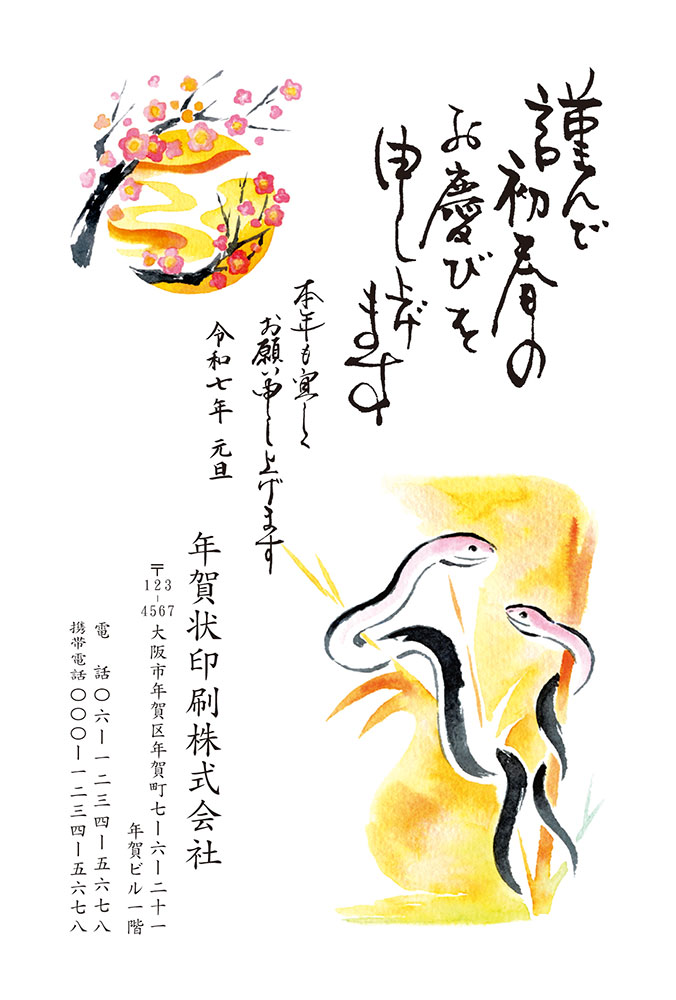 謹んで
初春の
お慶びを
申し上げ
ます
本年も宜しく
お願い申し上げます
令和七年 元旦
年賀状印刷株式会社
〒123-4567 大阪市年賀区年賀町七ー六ー二十一
年賀ビル一階
電 話 〇六ー一二三四ー五六七八
携帯電話 〇〇〇ー一二三四ー五六七八